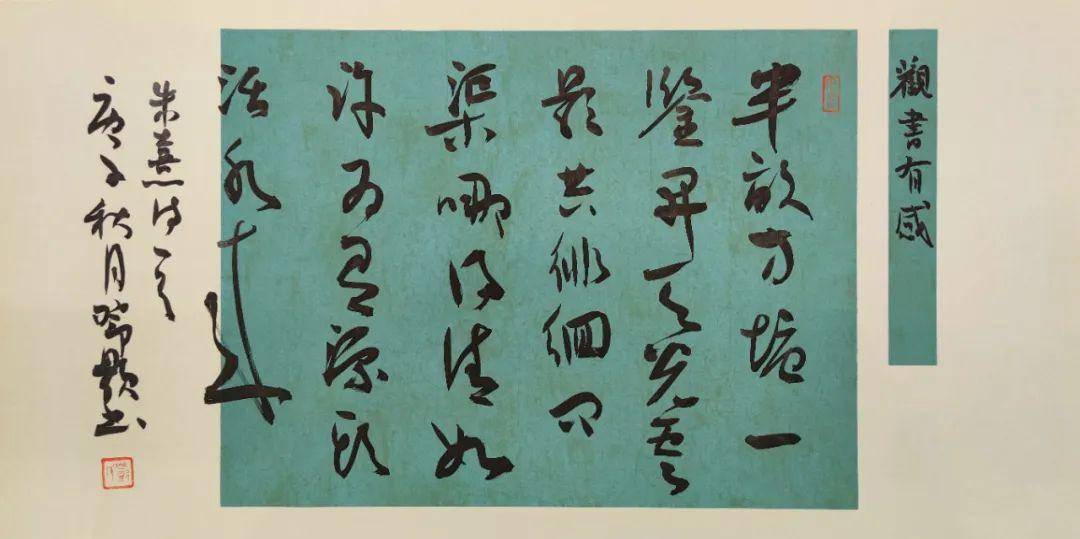 觀書有感
半畝方塘一
鑒開天光雲
影共徘徊問
渠哪得清如
許為有源頭
活水來
朱熹詩一首
庚子秋月書